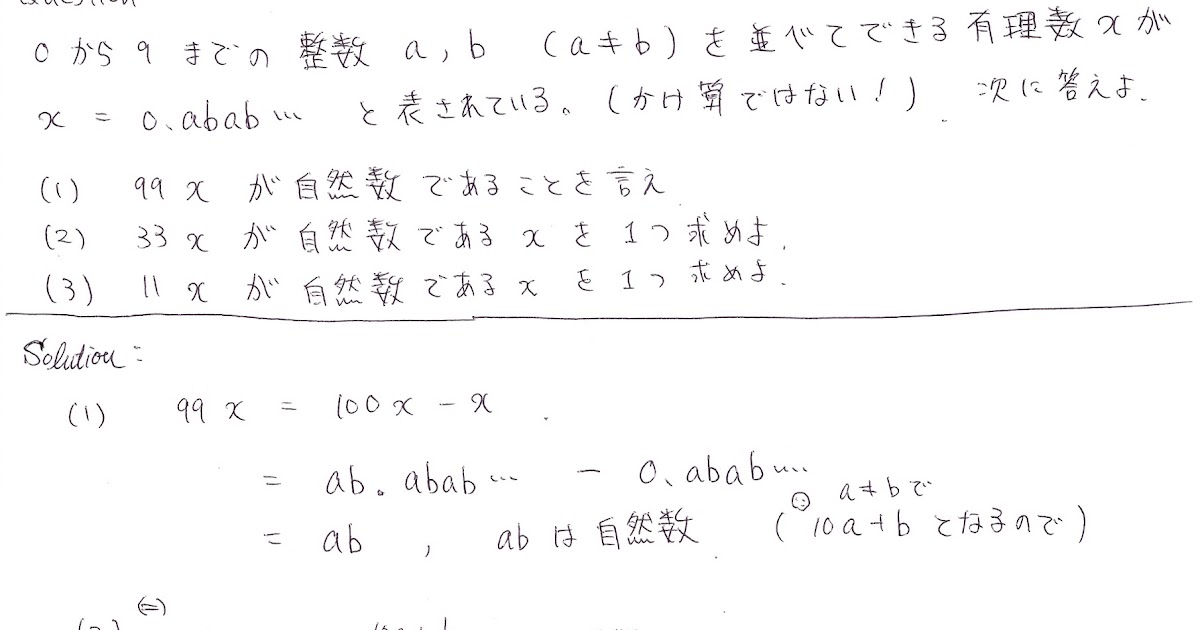 Question
0から9までの整数a,b (a≠b)を並べてできる有理数xが
x = 0.abab… と表されている。(かけ算ではない!) 次に答えよ.
(1) 99x が自然数であることを言え
(2) 33x が自然数であるxを1つ求めよ.
(3) 11x が自然数であるxを1つ求めよ.
Solution:
(1) 99x = 100x - x
= ab.abab… - 0.abab…
a≠bで
= ab , abは自然数 (10a+bとなるので)